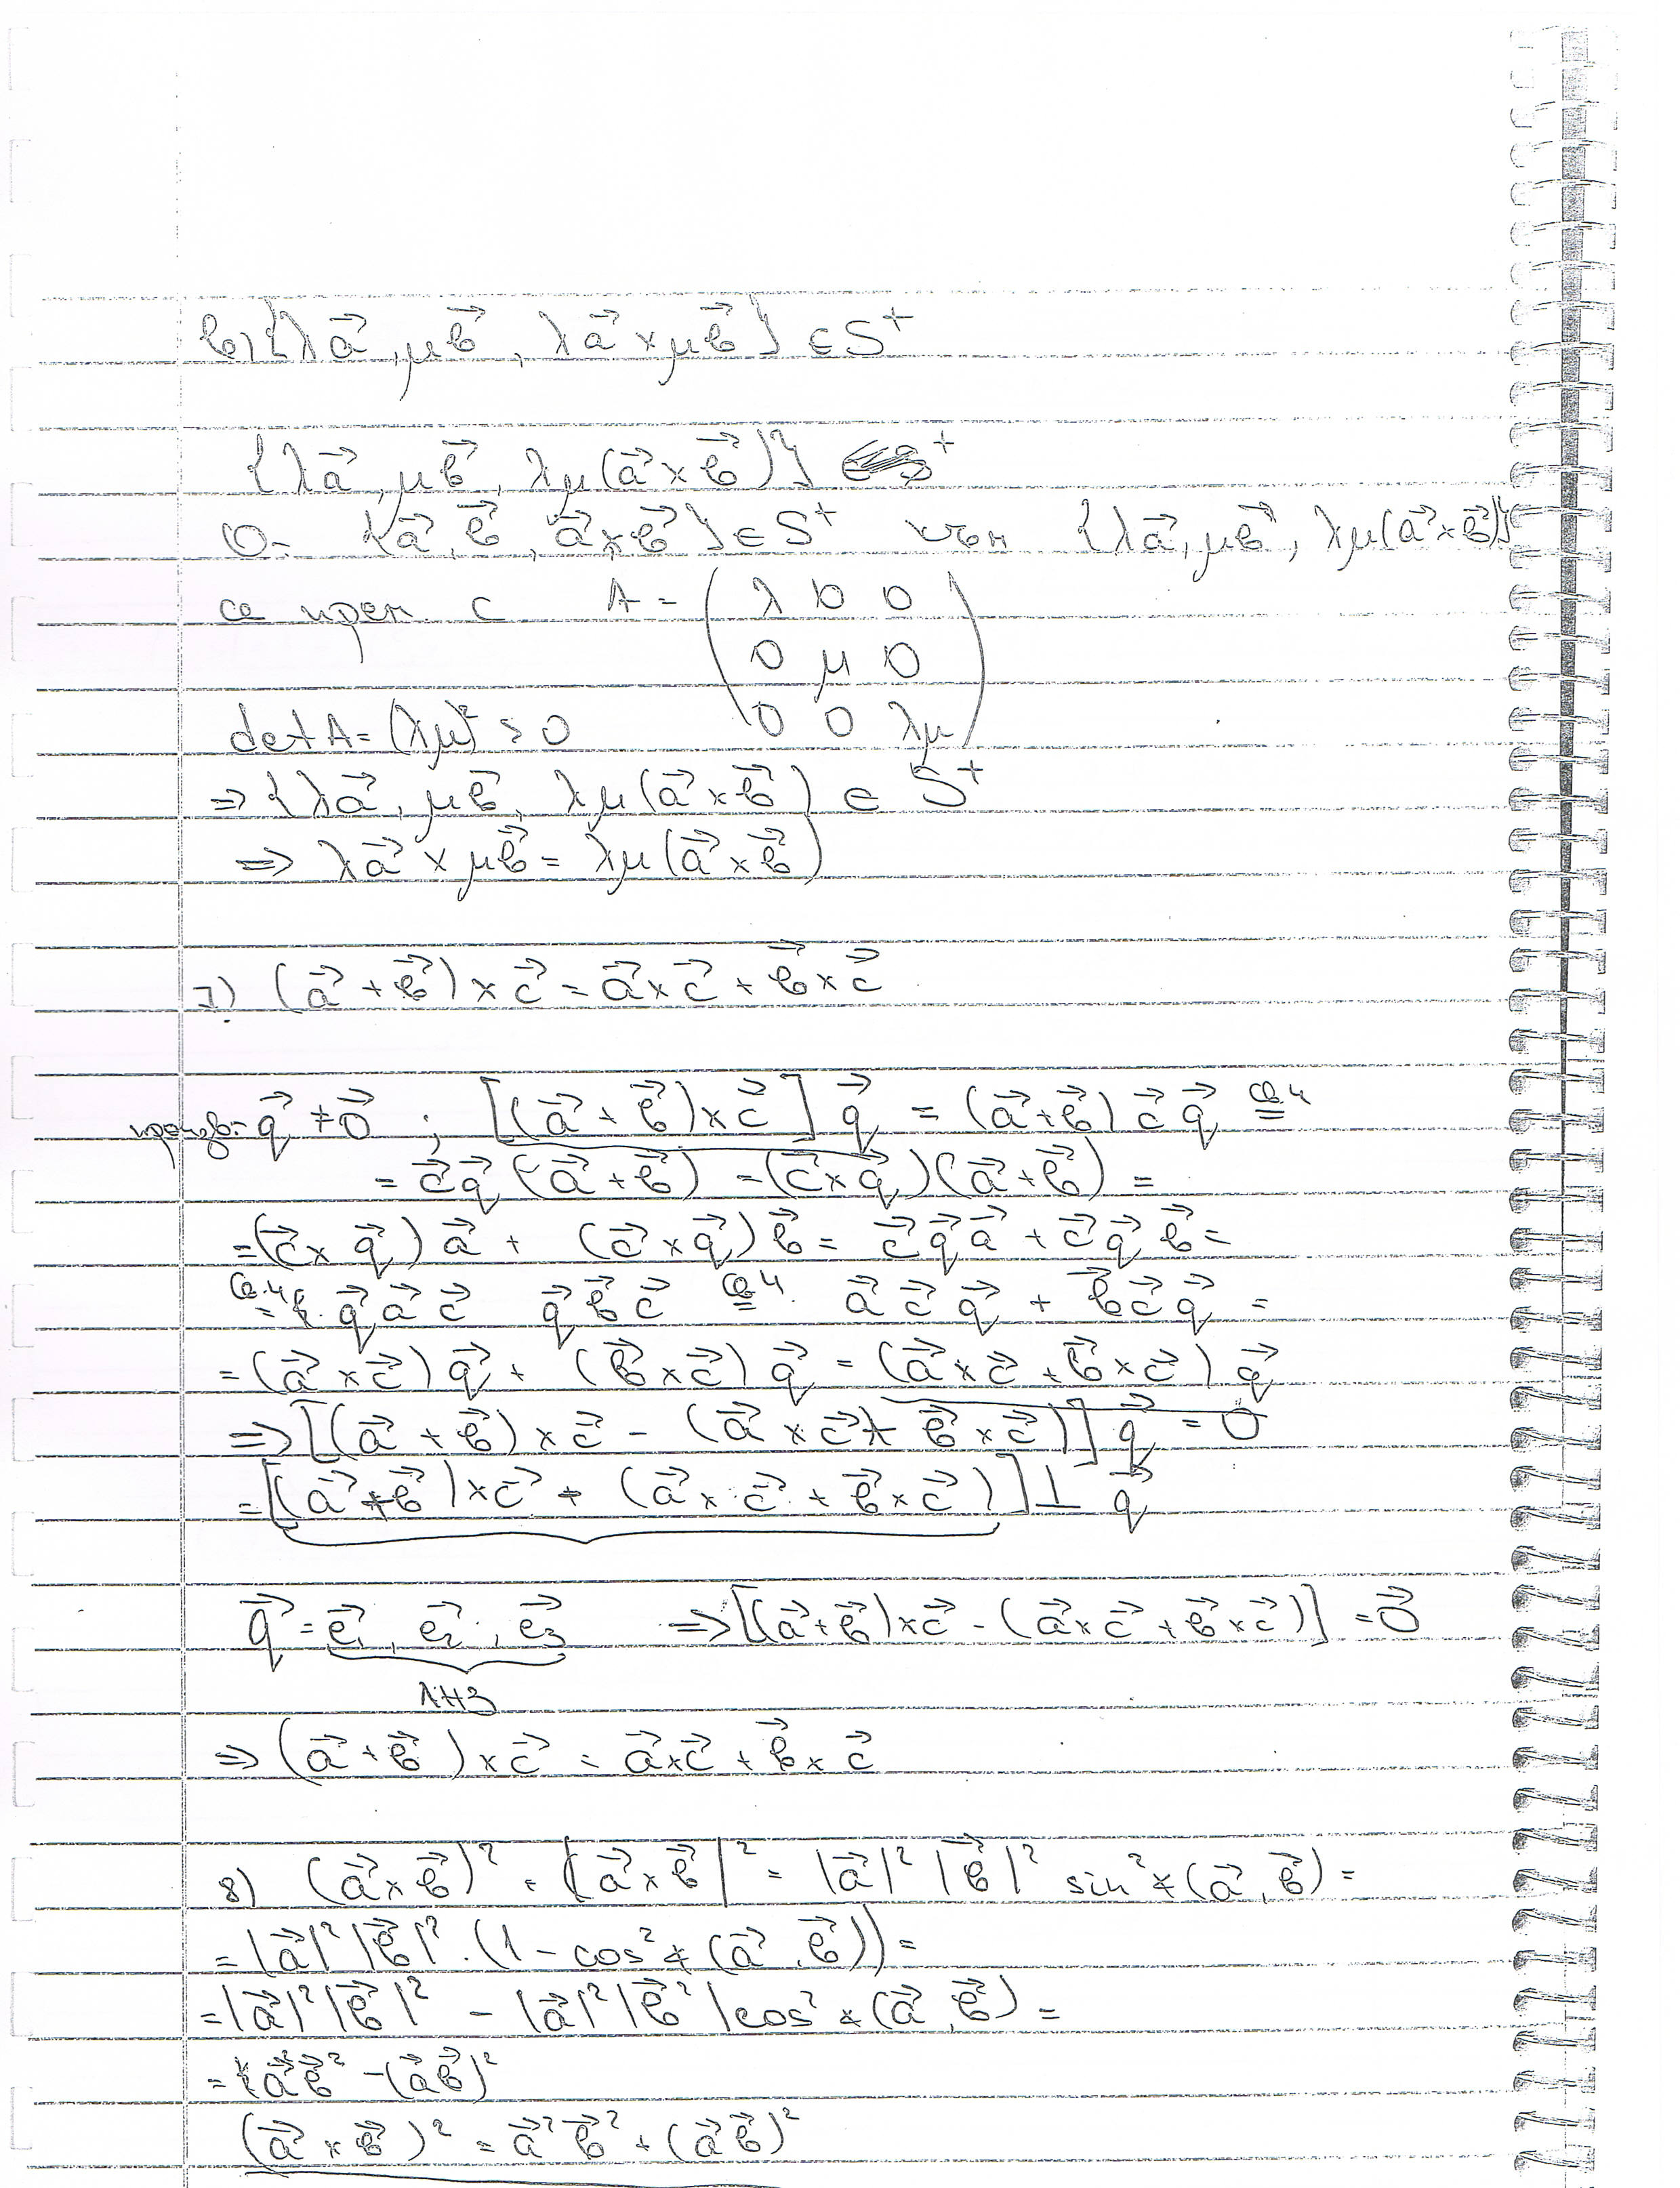 в) {λa⃗, μb⃗, λa⃗ × μb⃗} ∈ S⁺
{λa⃗, μb⃗, λμ(a⃗ × b⃗)}
{a⃗, b⃗, a⃗ × b⃗} ∈ S⁺ {λa⃗, μb⃗, λμ(a⃗ × b⃗)}
се с A = ( λ 0 0
0 μ 0
0 0 λμ )
det A = (λμ)² > 0
⇒ {λa⃗, μb⃗, λμ(a⃗ × b⃗) ∈ S⁺
⇒ λa⃗ × μb⃗ = λμ(a⃗ × b⃗)
7) (a⃗ + b⃗) × c⃗ = a⃗ × c⃗ + b⃗ × c⃗
произв. q⃗ ≠ 0⃗ ; [(a⃗ + b⃗) × c⃗] q⃗ = (a⃗ + b⃗) c⃗ q⃗ =^{св.4}
= c⃗ q⃗ (a⃗ + b⃗) = (c⃗ × q⃗)(a⃗ + b⃗) =
= (c⃗ × q⃗) a⃗ + (c⃗ × q⃗) b⃗ = c⃗ q⃗ a⃗ + c⃗ q⃗ b⃗ =
св.4 = q⃗ a⃗ c⃗ q⃗ b⃗ c⃗ =^{св.4} a⃗ c⃗ q⃗ + b⃗ c⃗ q⃗ =
= (a⃗ × c⃗) q⃗ + (b⃗ × c⃗) q⃗ = (a⃗ × c⃗ + b⃗ × c⃗) q⃗
⇒ [(a⃗ + b⃗) × c⃗ - (a⃗ × c⃗ + b⃗ × c⃗)] q⃗ = 0
= [(a⃗ + b⃗) × c⃗ - (a⃗ × c⃗ + b⃗ × c⃗)] ⊥ q⃗
q⃗ = e⃗₁, e⃗₂, e⃗₃ ⇒ [(a⃗ + b⃗) × c⃗ - (a⃗ × c⃗ + b⃗ × c⃗)] = 0⃗
ЛНЗ
⇒ (a⃗ + b⃗) × c⃗ = a⃗ × c⃗ + b⃗ × c⃗
8) (a⃗ × b⃗)² = |a⃗ × b⃗|² = |a⃗|² |b⃗|² sin² ∢(a⃗, b⃗) =
= |a⃗|² |b⃗|² . (1 - cos² ∢(a⃗, b⃗)) =
= |a⃗|² |b⃗|² - |a⃗|² |b⃗²| cos² ∢(a⃗, b⃗) =
= a⃗² b⃗² - (a⃗ b⃗)²
(a⃗ × b⃗)² = a⃗² b⃗² + (a⃗ b⃗)²